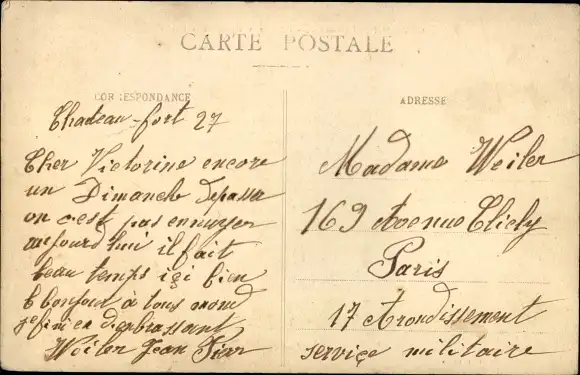 CARTE POSTALE
CORRESPONDANCE
Chadeau-fort 27
Cher Victorine encore
un Dimanche Depassa
on c'est pas ennuyer
aujourd'hui il fait
beau temps içi bien
b bonjour à tous mond
je fini en
Weiler Jean Pierr
ADRESSE
Madame Weiler
169 Avenue Clichy
Paris
17 Arondissement
serviçe militaire